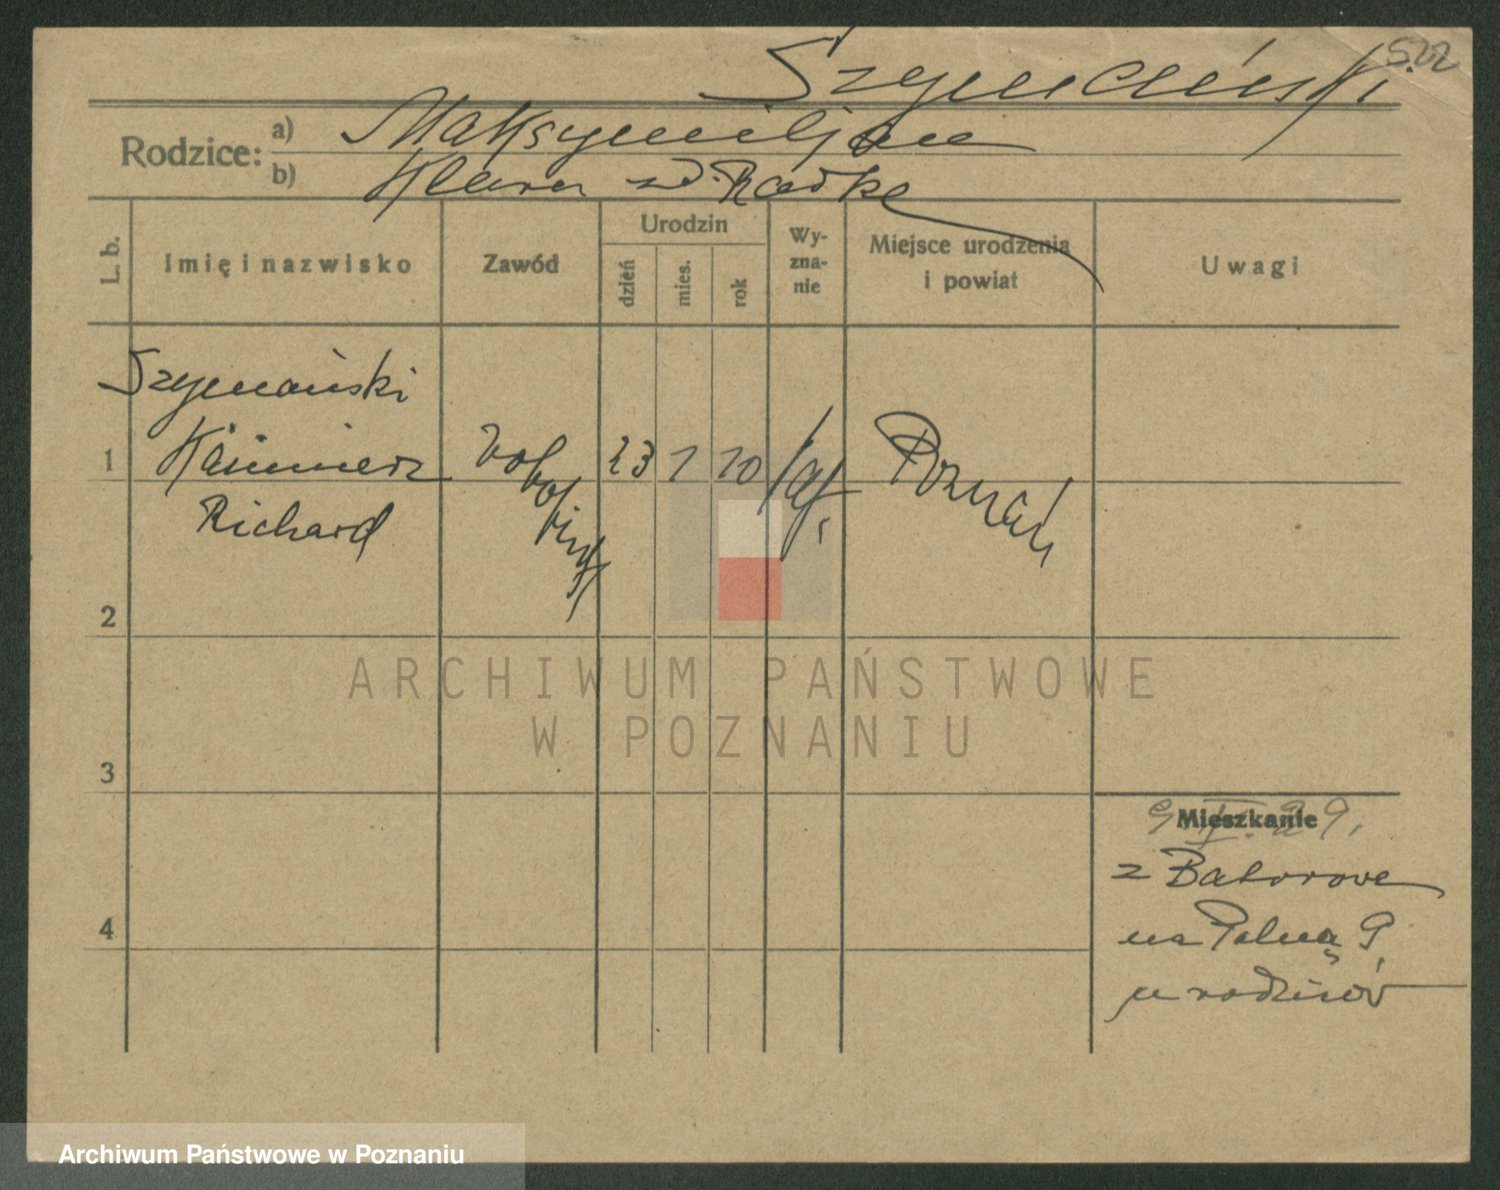 522
Szymański
Rodzice:
a) Maksymiljan
b) Klara zd. Radke
L. b.
Imię i nazwisko
Zawód
Urodzin
dzień
mies.
rok
Wy-
zna-
nie
Miejsce urodzenia
i powiat
Uwagi
Szymański
1 Kazimierz robotnik 23 1 10 Poznań
Richard
2
3
4
Mieszkanie
z Batorowa
na Polną 9,
u rodziców
ARCHIWUM PAŃSTWOWE
W POZNANIU
Archiwum Państwowe w Poznaniu